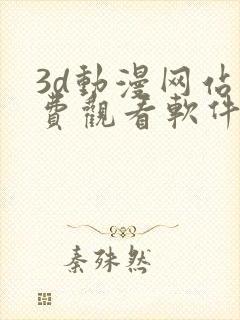 3d動漫网佔
費觀看軟件
秦殊然